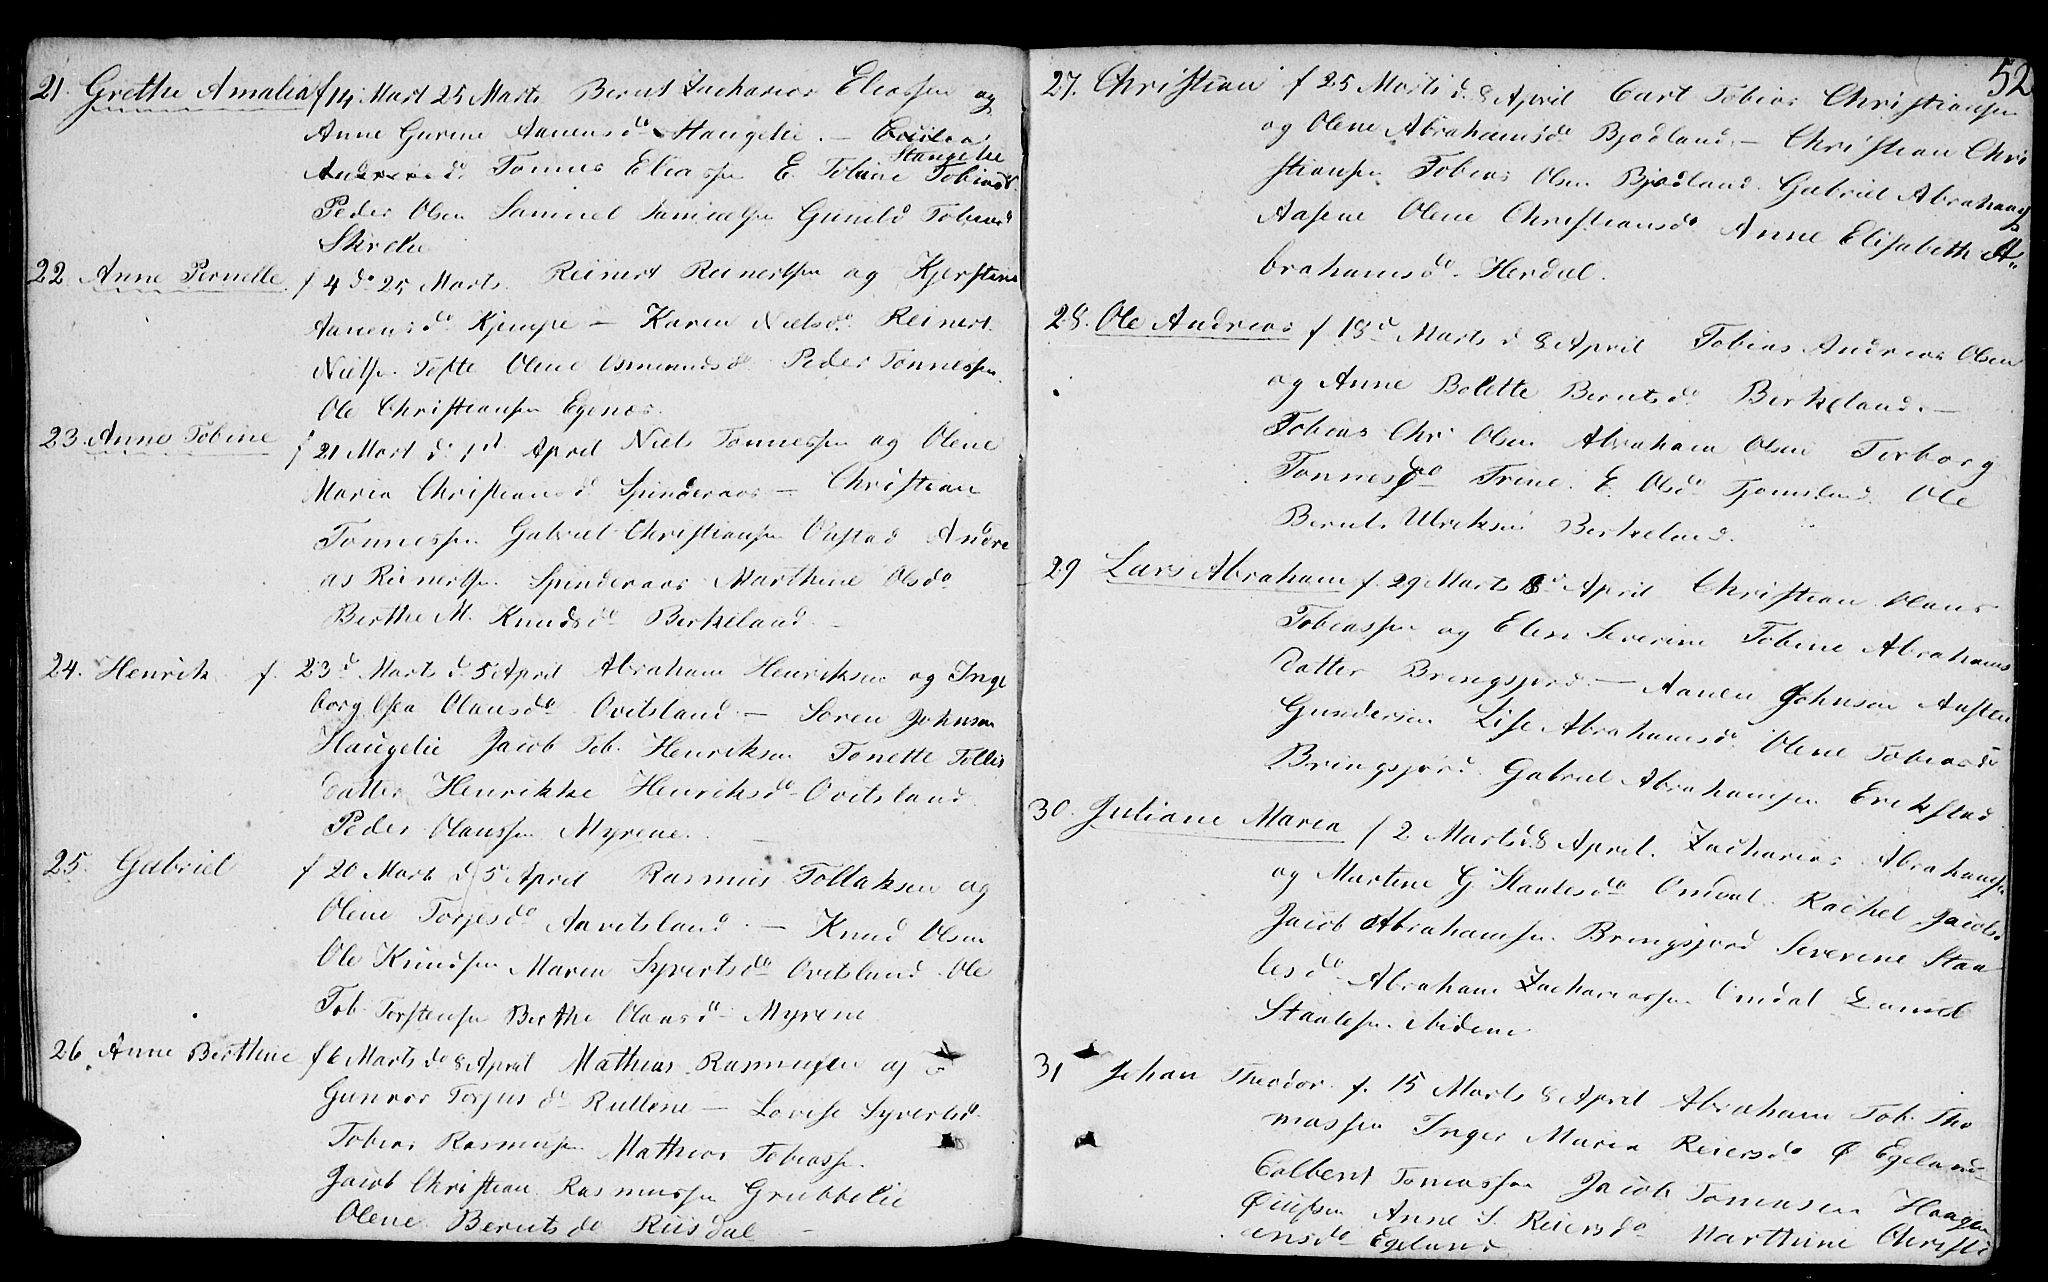 21. Grethe Amalia f 14 Mart 25 Marts Bernt Zacharias Eliassen og
Anne Gurine Aanensd Haugelie. —
Stangelie
Andreasd. Tønnes Eliassen E. Tobine Tobiasd
Peder Olsen Samuel Samuelsen Gunild Tobiasd
Skreelie
22 Anne Pernelle. f 4 do 25 Marts. Reinert Reinertsen og Kjerstine
Aanensd. Kjempe — Karen Nielsd. Reinert
Nielsen Tofte Olene Osmundsd. Peder Tønnessen.
Ole Christiansen Egenæs.
23. Anne Tobine f 21 Mart d. 1st April Niels Tønnessen og Olene
Maria Christiansd. Spinderaas — Christian
Tønnessen Gabriel Christiansen Opstad Andre
as Reinertsen Spinderaas Marthine Olsdr
Berthe M. Knudsdr Berkeland —
24. Henrik f. 23d Marts d. 5 April Abraham Henriksen og Inge
borg Olausdr Ovitsland — Søren Johnsen
Haugelie Jacob Tob. Henriksen Tonette Tollis
datter Henrikke Henriksdr Ovitsland
Peder Olaussen Myrene. —
25. Gabriel f 20 Mart d 5 April Rasmus Tollaksen og
Olene Torjesdr Aavitsland. — Knud Olsen
Ole Knudsen Maren Syvertsdr Ovitsland Ole
Tob. Torstensen Berthe Olausdr Myrene
26. Anne Berthine f 6 Marts do 8 April Mathias Rasmussen og
Gunvor Torjusdr Rullene — Lovise Syvertsd.
Tobias Rasmussen Mathias Tobiassen.
Jacob Christian Rasmussen Grubbelie
Olene Berntsdr Riisdal —
52
27. Christian f 25 Marts d. 8 April Cart Tobias Christiansen
og Olene Abrahamsdr Bjodland. — Christian Chri
stiansen Tobias Olsen Bjodland Gabriel Abrahams
Aasene Olene Christiansdr Anne Elisabeth A=
brahamsdr Herdal.
28. Ole Andreas f 18d Marts d 8 April Tobias Andreas Olsen
og Anne Bolette Berntsdr Berkeland. —
Tobias Chr Olsen Abraham Olsen Torborg
Tønnesdr Trine E. Olsdr Tjomsland Ole
Bernt Ulriksen Berkeland.
29 Lars Abraham f. 29 Marts 8d April Christian Olaus
Tobiassen og Elen Severine Tobine Abrahams
datter Bringsjord — Aanen Johnsen Austen
Gundersen Lise Abrahamsdr Olene Tobiasdr
Bringsjord. Gabriel Abrahamsen Erikstad
30. Juliane Maria f 2 Marts d. 8 April. Zacharias Abrahamsen
og Martine G Staalesdr Omdal. Rachel Jacobs
Jacob Abrahamsen Bringsjord Severine Staa
lesdr Abraham Zachariassen Omdal
Staalesen ibidem
31 Johan Theodor. f. 15 Marts 8 April Abraham Tob. Tho
massen Inger Maria Reiersdr Ø Egeland
Colbent Tomassen Jacob Tomassen Haagen
Anne S. Reiersdr Marthine Christi
ansdr Egeland